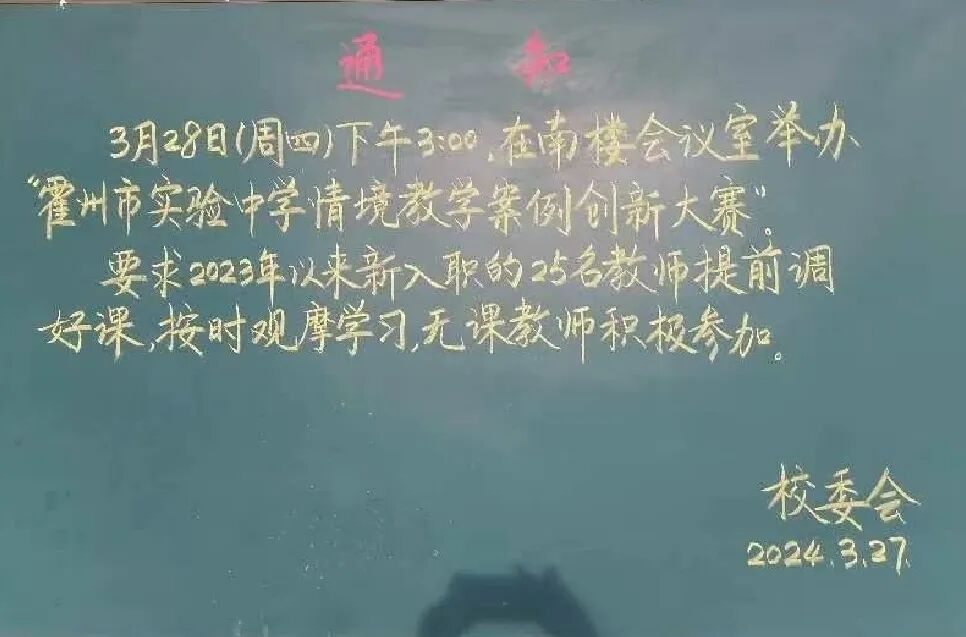 通 知
3月28日(周四)下午3:00,在南楼会议室举办
“霍州市实验中学情境教学案例创新大赛”。
要求2023年以来新入职的25名教师提前调
好课,按时观摩学习,无课教师积极参加。
校委会
2024.3.27.